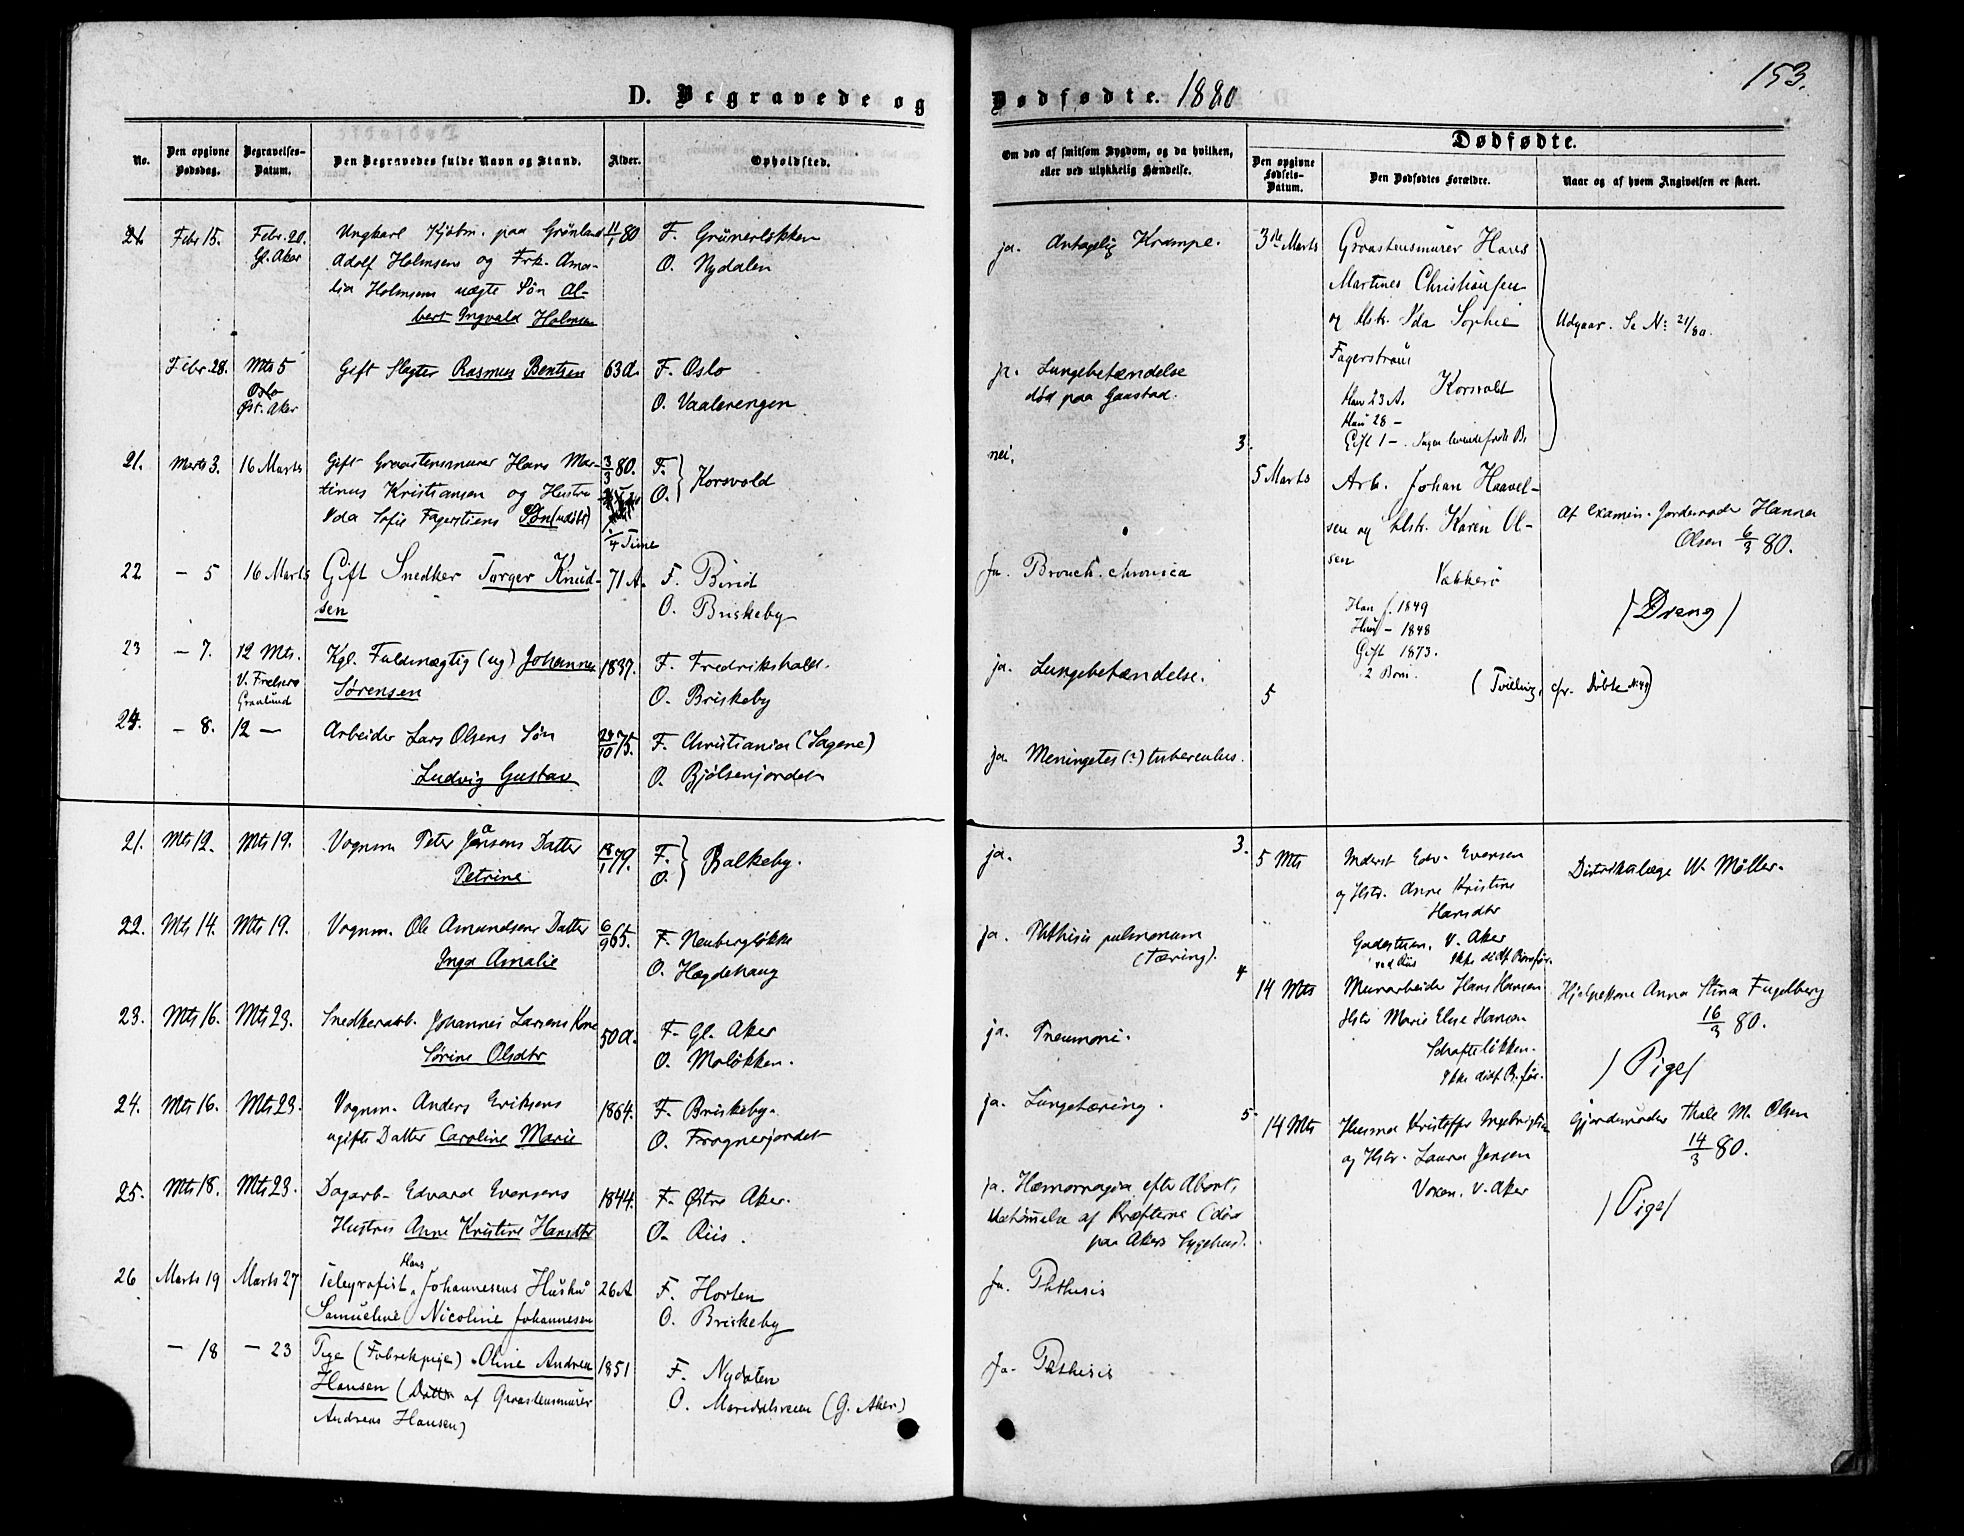 153.
D. Begravede og Dødfødte. 1880
No.
Den opgivne Dødsdag.
Begravelses-Datum.
Den Begravedes fulde Navn og Stand.
Alder.
Opholdsted.
Om død af smitsom Sygdom, og da hvilken, eller ved ulykkelig Hændelse.
Dødfødte.
Den opgivne Fødsels-Datum.
Den Dødfødtes Forældre.
Naar og af hvem Angivelsen er skeet.
21. Febr 15. Febr. 20. Ungkarl Kjøbm. paa Grønland 11/1 80 F. Grünerløkken
Gl. Aker Adolf Holmsens og Frk. Ama- O. Nydalen
lia Holmsens uægte Søn Al-
bert Ingvald Holmsen
Febr 28. Mts 5 Gift Slagter Rasmus Bentsen 63 A. F. Oslo
Oslo
Øst. Aker O. Vaalerengen
21. Marts 3. 16 Marts Gift Graastensmurer Hans Mar- 3/3 80. F. } Korsvold
tinus Kristiansen og Hustru O.
Ida Sofie Fagerstiens Søn (udøbt)
1/4 Time
22 – 5 16 Marts Gift Snedker Torger Knud- 71 A. F. Birid
sen O. Briskeby
23 – 7. 12 Mts. Kgl. Fuldmægtig (ug) Johannes 1837. F. Fredrikshald.
V. Frelsers Sørensen O. Briskeby
Gravlund
24. – 8. 12 – Arbeider Lars Olsens Søn 24/10 75. F. Christiania (Sagene)
Ludvig Gustav O. Bjølsenjordet
21. Mts 12. Mts 19. Vognm. Peter Jansens Datter 18/1 79. F. } Balkeby.
Petrine O.
22. Mts 14. Mts 19. Vognm. Ole Amundsens Datter 6/9 65. F. Neubergløkke
Inga Amalie O. Hægdehaug
23. Mts 16. Mts 23. Snedkerarb. Johannes Larsens Kone 50 A. F. Gl. Aker
Sørine Olsdtr O. Moløkken.
24. Mts 16. Mts 23. Vognm. Anders Eriksens 1864. F. Briskeby.
ugifte Datter Caroline Marie O. Frognerjordet
25. Mts 18. Mts 23. Dagarb. Edvard Evensens 1844. F. Østre Aker.
Hustru Anne Kristine Hansdtr O. Riis.
26 Marts 19 Marts 27 Telegrafist Hans Johannesens Hustru 26 A F. Horten
Samueline Nicoline Johannesen O. Briskeby
– 18 – 23 Pige (Fabrikpige) Oline Andrea 1851 F. Nydalen
Hansen (Datter af Graastensmurer O. Maridalsveien (G. Aker)
Andreas Hansen)
ja. Antagelig Krampe.
ja. Lungebetændelse
død paa Gaustad.
nei.
Ja. Bronch. chronica
ja. Lungebetændelse.
ja. Meningetes (?) tuberculus.
ja.
ja. Phthisis pulmonum
(Tæring).
ja. Pneumoni.
ja. Lungetæring.
ja. Hæmorragia efter Abort,
Udtømmelse af Kræfterne (død
paa Akers Sygehus).
Ja. Phthisis
Ja. Phthisis
3de Marts Graastensmurer Hans
Martines Christiansen
og Hstr. Ida Sophie Udgaar. Se No: 21/80.
Fagerstrøm
Korsvold
Han 23 A.
Hun 28 –
Gift 1 –. Ingen levendefødte B.
3. 5 Marts Arb. Johan Haavel-
sen og Hstr. Karen Ol- Af examin. Jordemoder Hanna
sen Olsen 6/3 80.
Vækkerø
Han f. 1849 (Dreng)
Hun – 1848
Gift 1873.
2 Børn.
5 (Tvilling, cfr. Døbte No 49)
3. 5 Mts Inderst Edv. Evensen Distriktslæge W. Møller.
og Hstr. Anne Kristine
Hansdtr
Gaderstuen. V. Aker
ved Riis Ikke didf. Børn før.
4 14 Mts Murarbeider Hans Hansen Hjelpekone Anna Stina Fugelberg
Hstr Marie Elise Hansen 16/3 80.
Schafteløkken.
Ikke didf. B. før. (Pige)
5 14 Mts Husmd Kristoffer Ingebrigtsen Gjordemoder Thale M. Olsen
og Hstr. Laura Jensen 14/3 80.
Voxen. V. Aker (Pige)